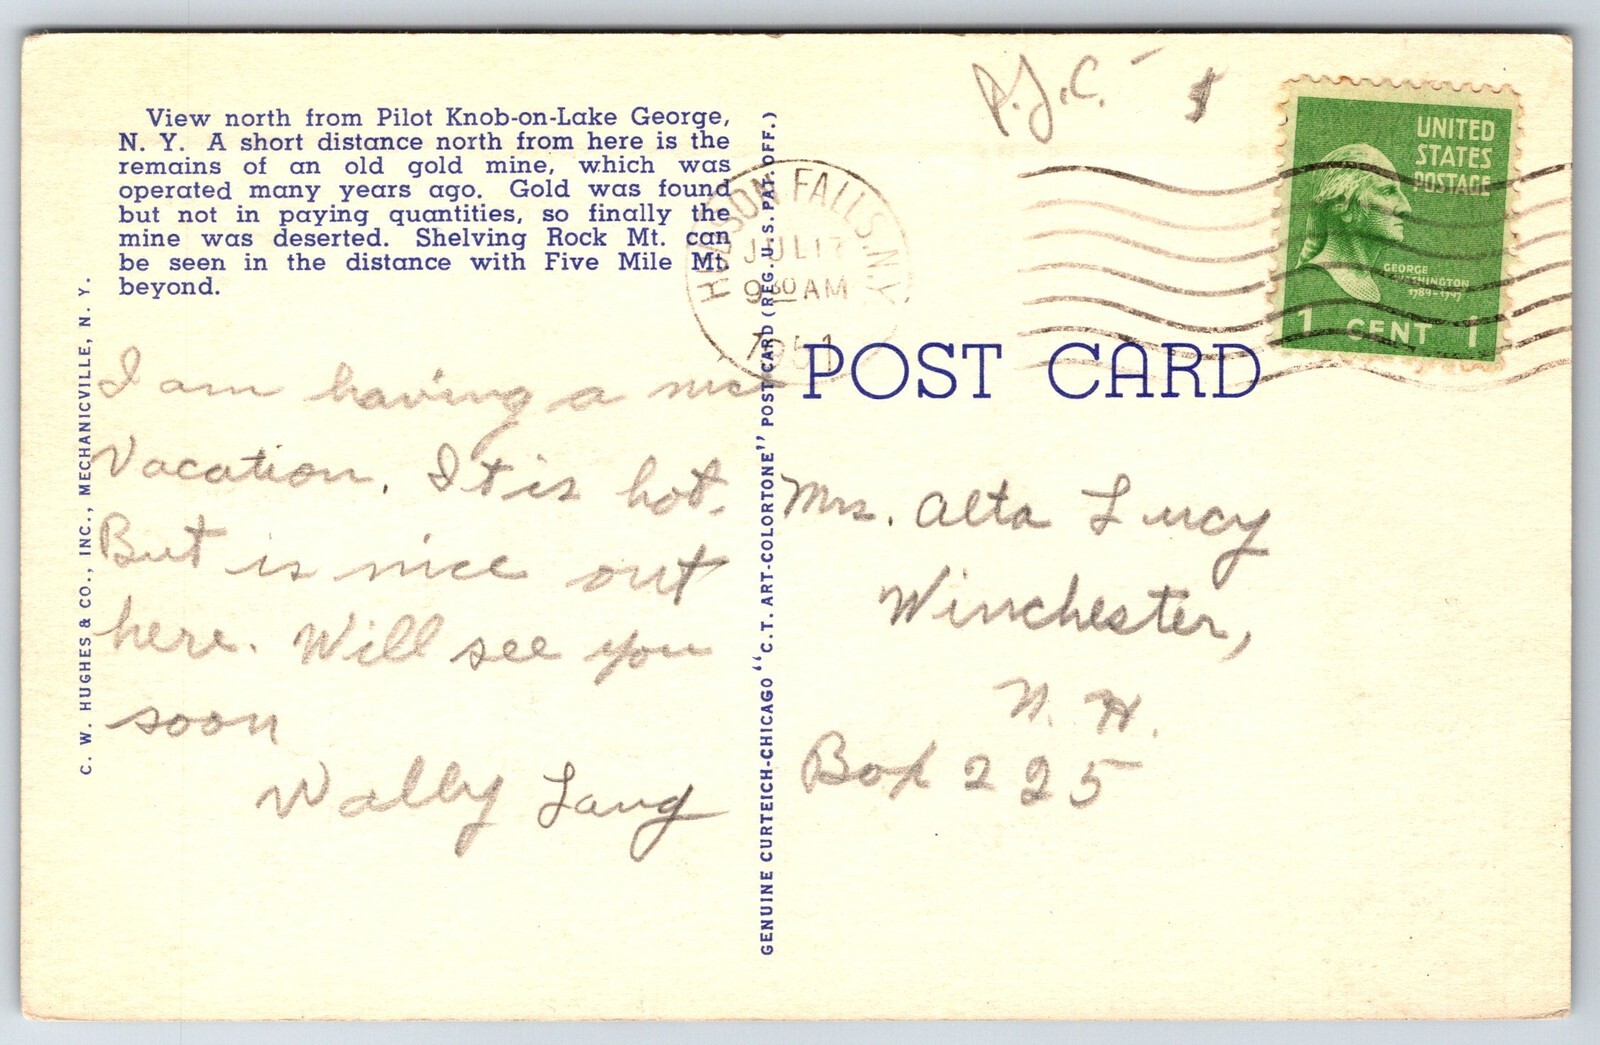 View north from Pilot Knob-on-Lake George,
N. Y. A short distance north from here is the
remains of an old gold mine, which was
operated many years ago. Gold was found
but not in paying quantities, so finally the
mine was deserted. Shelving Rock Mt. can
be seen in the distance with Five Mile Mt.
beyond.
C. W. HUGHES & CO., INC., MECHANICVILLE, N. Y.
I am having a nice
Vacation. It is hot.
But is nice out
here. Will see you
soon
Wally Lang
GENUINE CURTEICH-CHICAGO "C.T. ART-COLORTONE" POST CARD (REG. U.S. PAT. OFF.)
HUDSON FALLS, N.Y.
JUL 17
9 30 AM
1951
POST CARD
UNITED
STATES
POSTAGE
GEORGE
WASHINGTON
1789-1797
1 CENT 1
Mrs. Alta Lucy
Winchester,
N. H.
Box 225